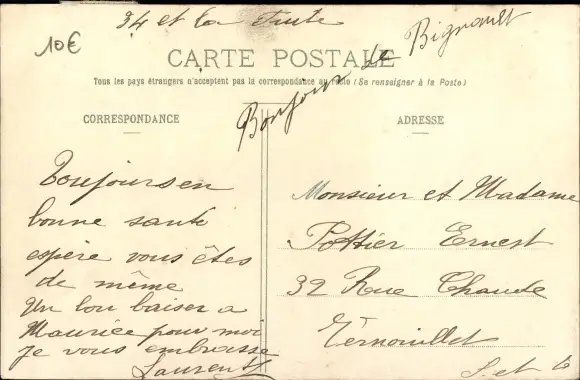 34 et la suite
10€
CARTE POSTALE
Bonjour de Bignault
Tous les pays étrangers n'acceptent pas la correspondance au recto (Se renseigner à la Poste)
CORRESPONDANCE
ADRESSE
Toujours en
bonne santé
espère vous êtes
de même
Un bon baiser a
Maurice pour moi
je vous embrasse
Laurent
Monsieur et Madame
Pottier Ernest
32 Rue Chaude
Vernouillet
S. et O